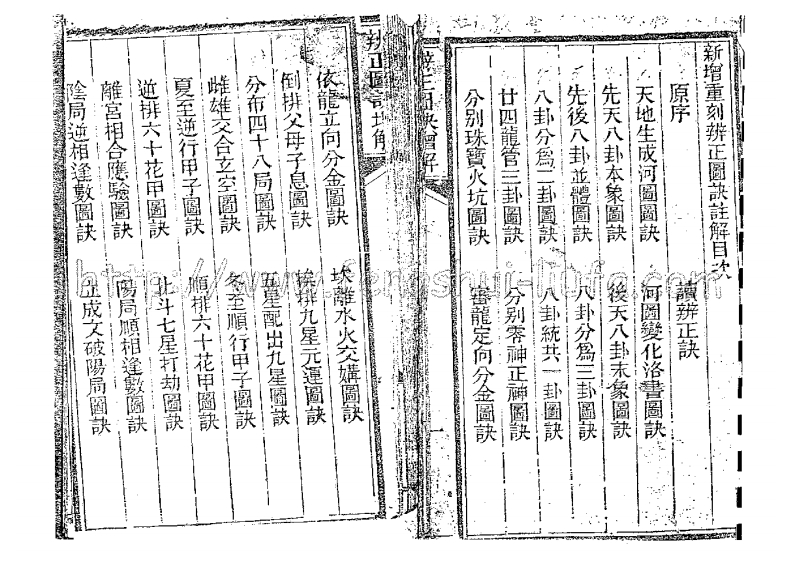 新增重刻辨正圖訣註解目次
原序
讀辨正訣
天地生成河圖圖訣
河圖變化洛書圖訣
先天八卦本象圖訣
後天八卦末象圖訣
先後八卦並體圖訣
八卦分爲三卦圖訣
八卦分爲二卦圖訣
八卦統共一卦圖訣
廿四龍管三卦圖訣
分別零神正神圖訣
分别珠寶火坑圖訣
審龍定向分金圖訣
辨正圖訣增解
一
辨正圖訣增解
依龍立向分金圖訣
坎離水火交媾圖訣
倒排父母子息圖訣
挨排九星元運圖訣
分布四十八局圖訣
五星配出九星圖訣
雌雄交合玄空圖訣
冬至順行甲子圖訣
夏至逆行甲子圖訣
順排六十花甲圖訣
逆排六十花甲圖訣
北斗七星打劫圖訣
離宮相合應驗圖訣
陽局順相逢數圖訣
陰局逆相逢數圖訣
正成文破陽局圖訣